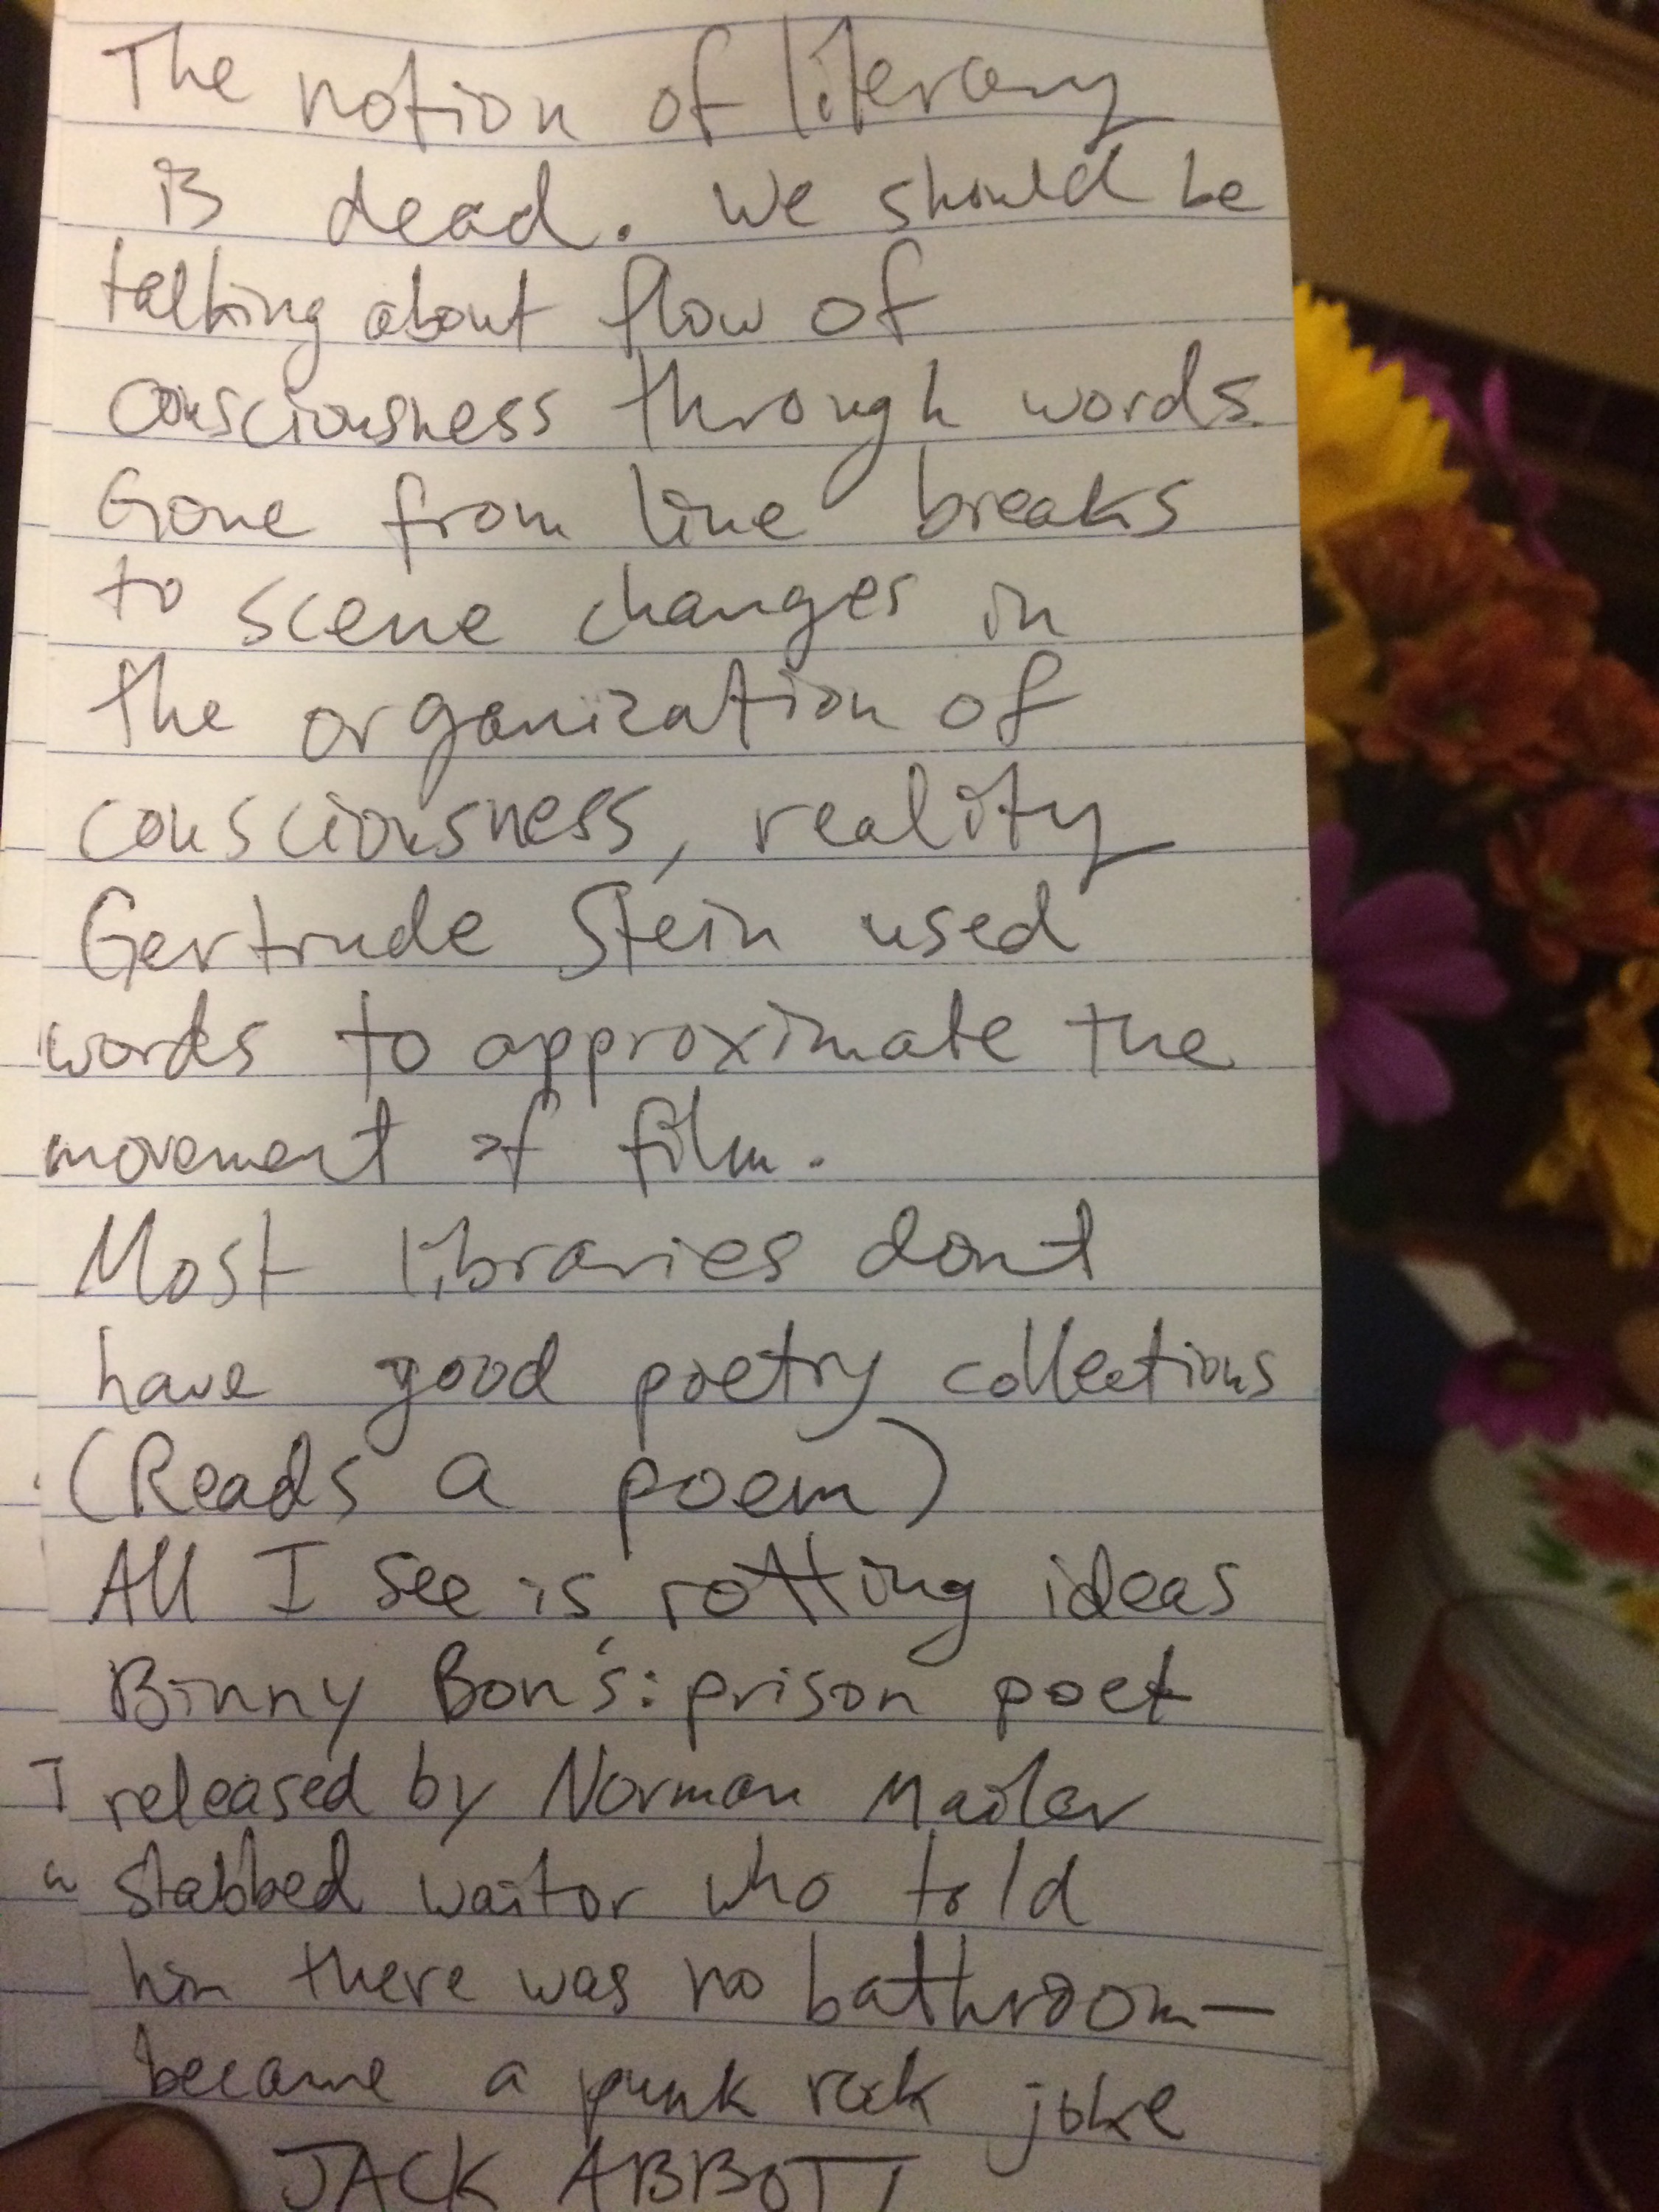 The notion of literary
is dead. We should be
talking about flow of
consciousness through words.
Gone from line breaks
to scene changes in
the organization of
consciousness, reality
Gertrude Stein used
words to approximate the
movement of film.
Most libraries dont
have good poetry collections
(Reads a poem)
All I see is rotting ideas
Binny Bon's: prison poet
released by Norman Mailer
stabbed waitor who told
him there was no bathroom—
became a punk rock joke
JACK ABBOTT